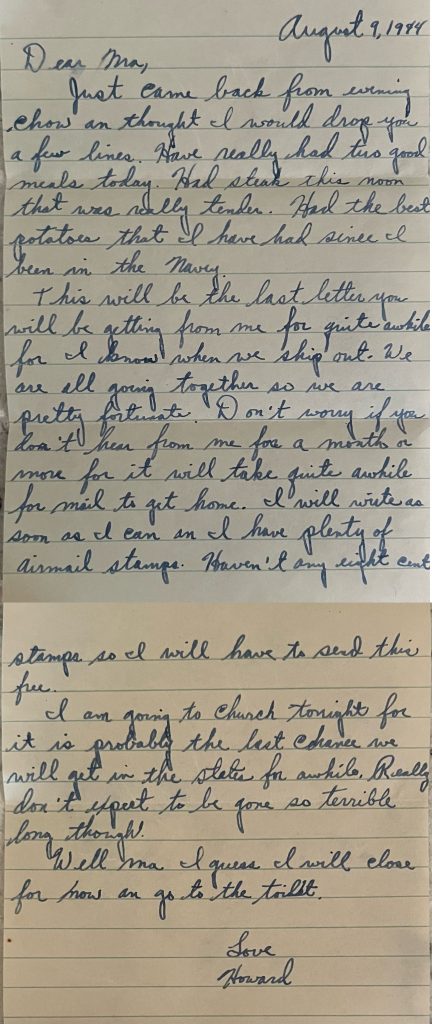 August 9, 1944
Dear Ma,
Just came back from evening
chow an thought I would drop you
a few lines. Have really had two good
meals today. Had steak this noon
that was really tender. Had the best
potatoes that I have had since I
been in the Navy.
This will be the last letter you
will be getting from me for quite awhile
for I know when we ship out. We
are all going together so we are
pretty fortunate. Don't worry if you
don't hear from me for a month or
more for it will take quite awhile
for mail to get home. I will write as
soon as I can an I have plenty of
airmail stamps. Haven't any eight cent
stamps so I will have to send this
free.
I am going to church tonight for
it is probably the last chance we
will get in the states for awhile. Really
don't expect to be gone so terrible
long though.
Well ma I guess I will close
for now an go to the toilet.
Love
Howard